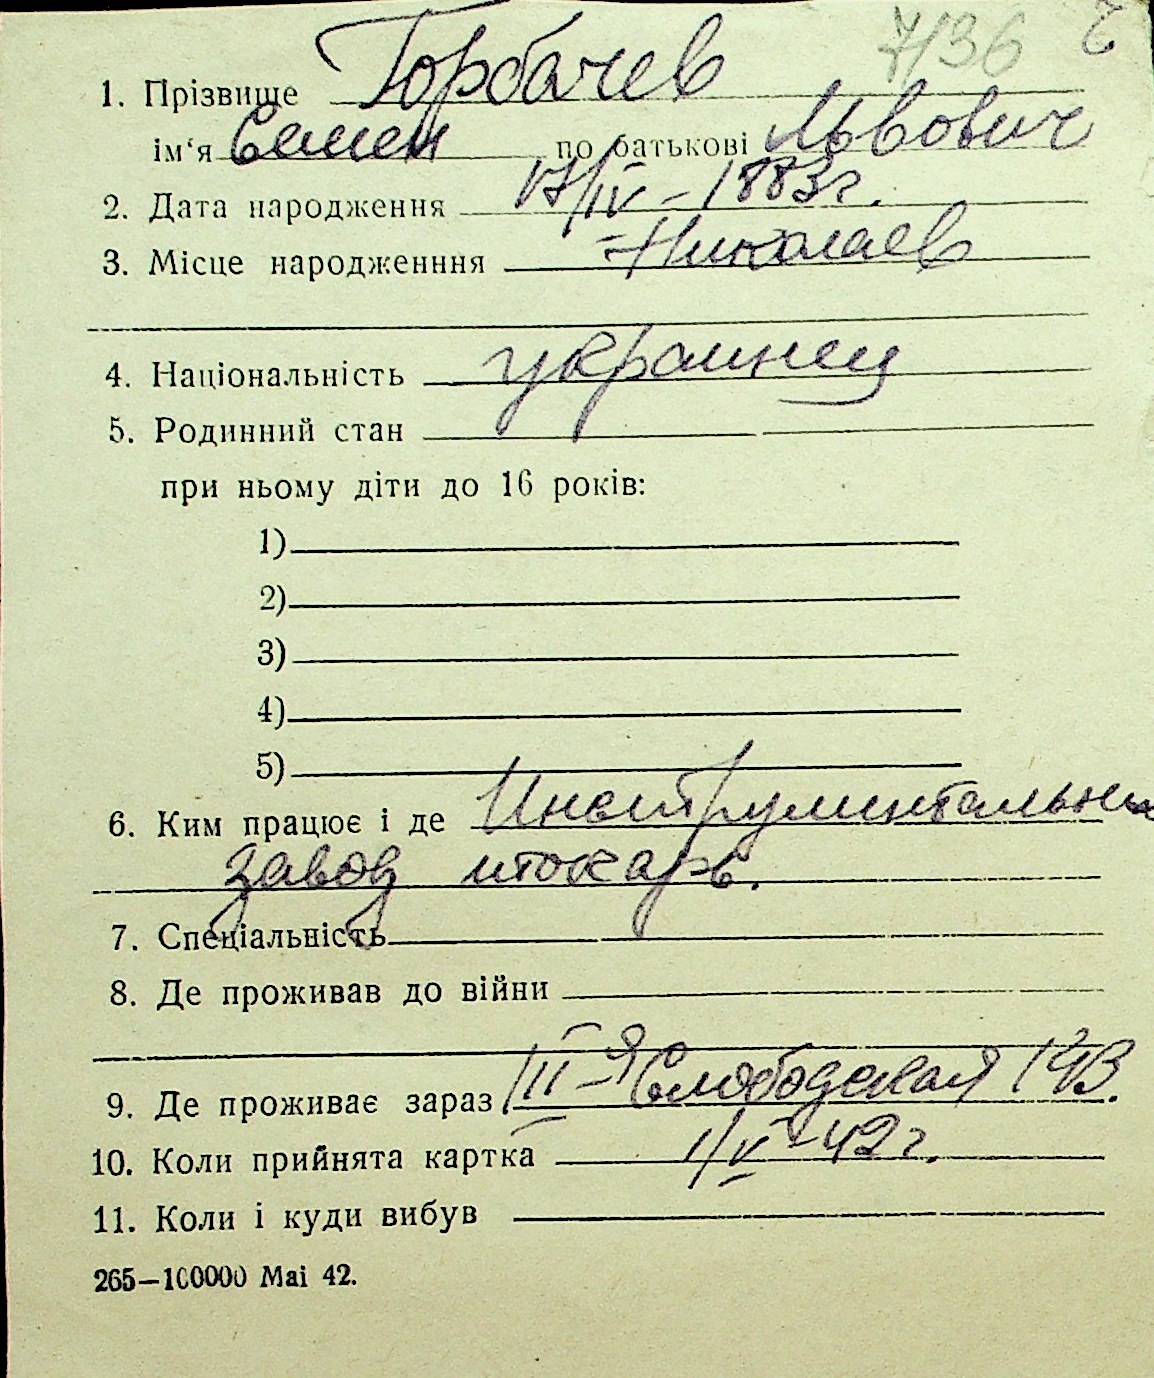 7/36
1. Прізвище Горбачев
ім‘я Семен по батькові Львович
2. Дата народження 17/IV – 1883 г.
3. Місце народженння Николаев
4. Національність украинец
5. Родинний стан
при ньому діти до 16 років:
1)
2)
3)
4)
5)
6. Ким працює і де Инструментальн
завод токарь.
7. Спеціальність
8. Де проживав до війни
9. Де проживає зараз III–я Слободская 143.
10. Коли прийнята картка 1/V–42 г.
11. Коли і куди вибув
265—100000 Mai 42.